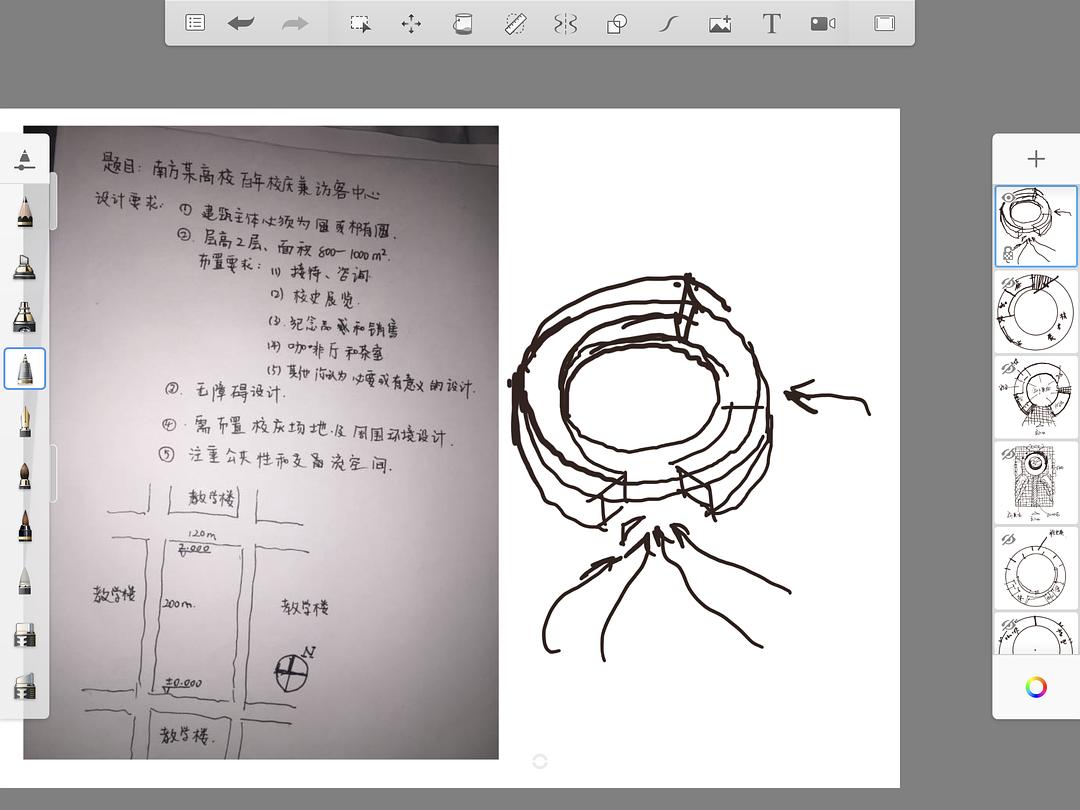 题目: 南方某高校百年校庆兼访客中心
设计要求: ① 建筑主体必须为圆或椭圆.
②. 层高2层、面积 800—1000 m².
布置要求: (1) 接待、咨询
(2) 校史展览.
(3). 纪念品 和销售
(4) 咖啡厅和茶室
(5) 其他你认为必要或有意义的设计.
③. 无障碍设计.
④. 需布置校庆场地及周围环境设计.
⑤ 注重公共性和交流空间.
教学楼
120m
2.000
教学楼
200m.
教学楼
N
±0.000
教学楼.
T